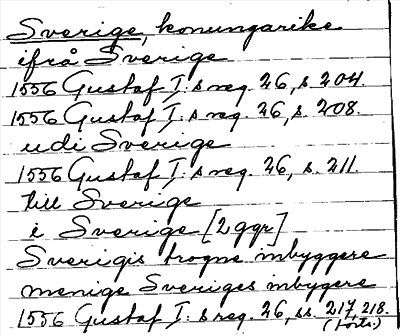 Sverige, konungarike
ifrå Sverige
1556 Gustaf I:s reg. 26, s. 204.
1556 Gustaf I:s reg. 26, s. 208.
udi Sverige
1556 Gustaf I:s reg. 26, s. 211.
till Sverige
i Sverige [2 ggr]
Sverigis trogne inbyggere
menige Sveriges inbygere
1556 Gustaf I:s reg. 26, ss. 217, 218.
(forts.)